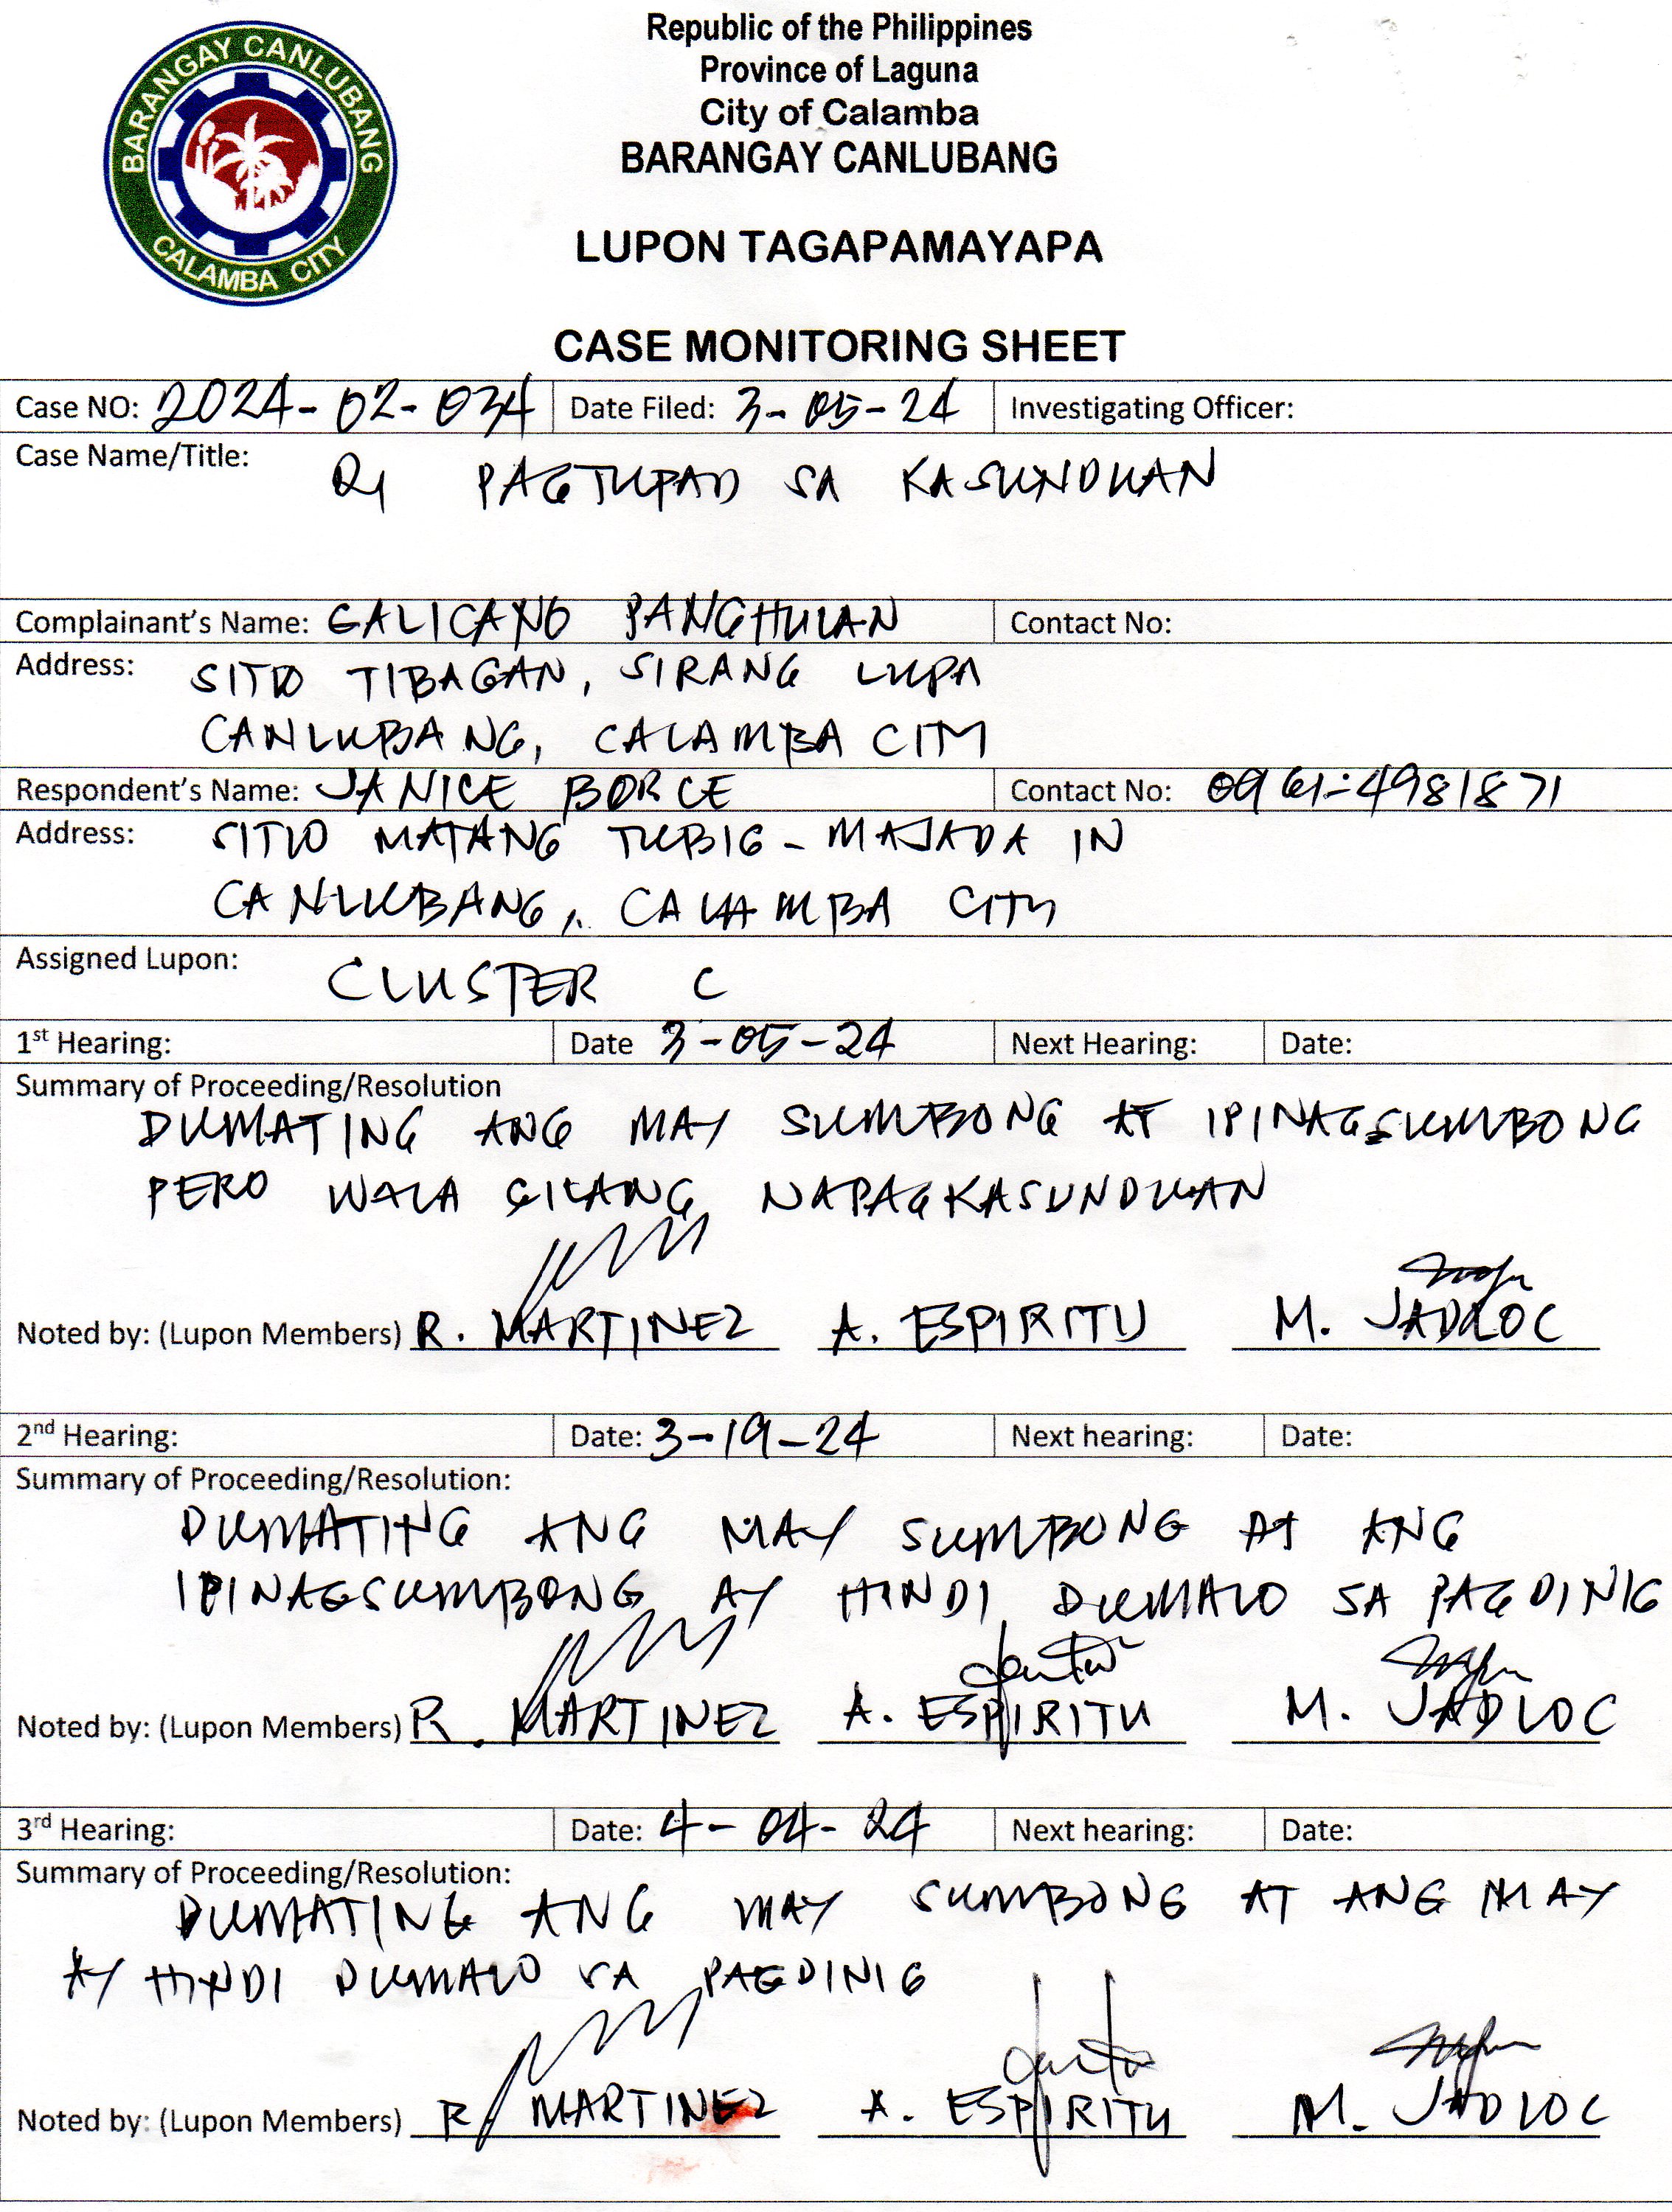 BARANGAY CANLUBANG
CALAMBA CITY
Republic of the Philippines
Province of Laguna
City of Calamba
BARANGAY CANLUBANG
LUPON TAGAPAMAYAPA
CASE MONITORING SHEET
Case NO: 2024-02-034 Date Filed: 3-05-24 Investigating Officer:
Case Name/Title: PAGTUPAD SA KASUNDUAN
Complainant's Name: GALICANO PANGHULAN Contact No:
Address: SITIO TIBAGAN, SIRANG LUPA
CANLUBANG, CALAMBA CITY
Respondent's Name: JANICE BORCE Contact No: 0961-4981871
Address: SITIO MATANG TUBIG - MAJADA IN
CANLUBANG, CALAMBA CITY
Assigned Lupon: CLUSTER C
1st Hearing: Date 3-05-24 Next Hearing: Date:
Summary of Proceeding/Resolution
DUMATING ANG MAY SUMBONG AT IPINAGSUMBONG
PERO WALA SILANG NAPAGKASUNDUAN
Noted by: (Lupon Members) R. MARTINEZ A. ESPIRITU M. JADLOC
2nd Hearing: Date: 3-19-24 Next hearing: Date:
Summary of Proceeding/Resolution:
DUMATING ANG MAY SUMBONG AT ANG
IPINAGSUMBONG AY HINDI DUMALO SA PAGDINIG
Noted by: (Lupon Members) R. MARTINEZ A. ESPIRITU M. JADLOC
3rd Hearing: Date: 4-04-24 Next hearing: Date:
Summary of Proceeding/Resolution:
DUMATING ANG MAY SUMBONG AT ANG MAY
AY HINDI DUMALO SA PAGDINIG
Noted by: (Lupon Members) R MARTINEZ A. ESPIRITU M. JADLOC